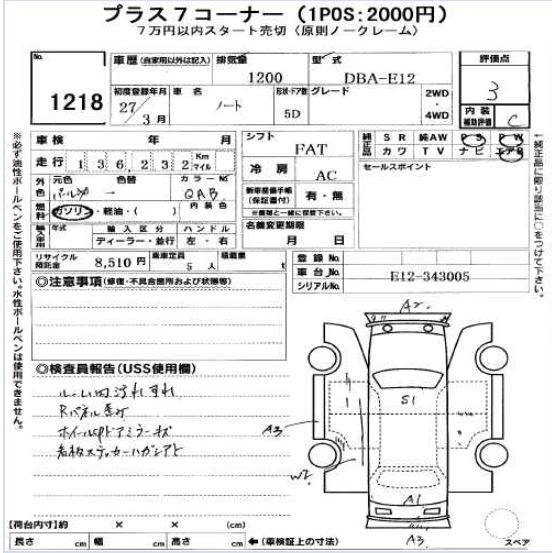 プラス7コーナー（1POS:2000円）
7万円以内スタート売切〈原則ノークレーム〉
No.
1218
車歴（自家用以外は記入） 排気量 型式 評価点
1200 DBA-E12 3
初度登録年月 車名 形状・ドア数 グレード 2WD・4WD
27/3月 ノート 5D
内装補助評価 C
車検 年 月
シフト FAT
純正品 SR 純AW PS PW
カワ TV ナビ エアB
走行 136,232 Km マイル
冷房 AC
セールスポイント
外色 元色 色替 カラーNo.
パール QAB
新車整備手帳（保証書付） 有・無
※書類と一緒に保管下さい。
燃料 ガソリン・軽油・( ) 内装色
名義変更期限 月 日
輸入車用 年式 輸入区分 ハンドル
ディーラー・並行 左・右
リサイクル預託金 8,510円 乗車定員 5人 積載量 t
登録No.
車台No.
シリアルNo.
E12-343005
◎注意事項（修復・不具合箇所および状態等）
◎検査員報告（USS使用欄）
ホイールキズドアミラーキズ
看板ステッカーハガシアト
A2
S1
A3
W2
A1
A3
スペア
【荷台内寸】約 × × (cm)
長さ cm 幅 cm 高さ cm ←（車検証上の寸法）
※必ず油性ボールペンをご使用下さい。水性ボールペンは使用できません。
↑純正品に限り該当に○をつけて下さい。